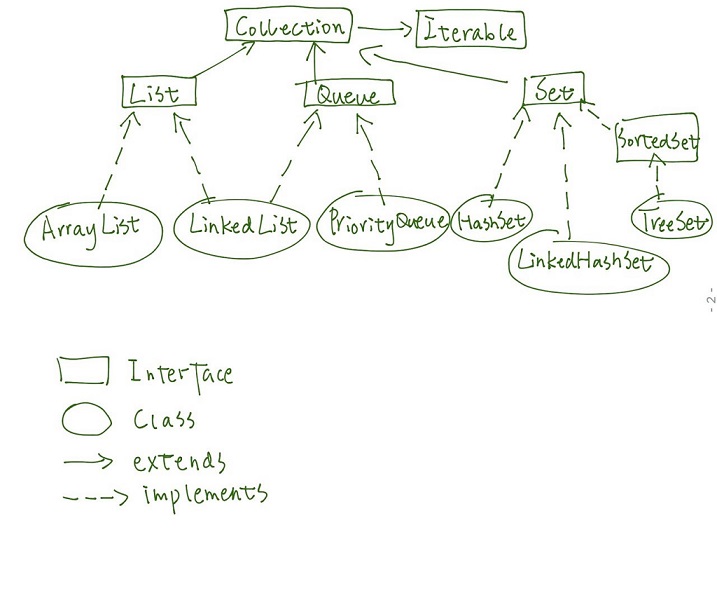 Collection
Iterable
List
Queue
Set
SortedSet
ArrayList
LinkedList
PriorityQueue
HashSet
TreeSet
LinkedHashSet
-2-
Interface
Class
extends
implements